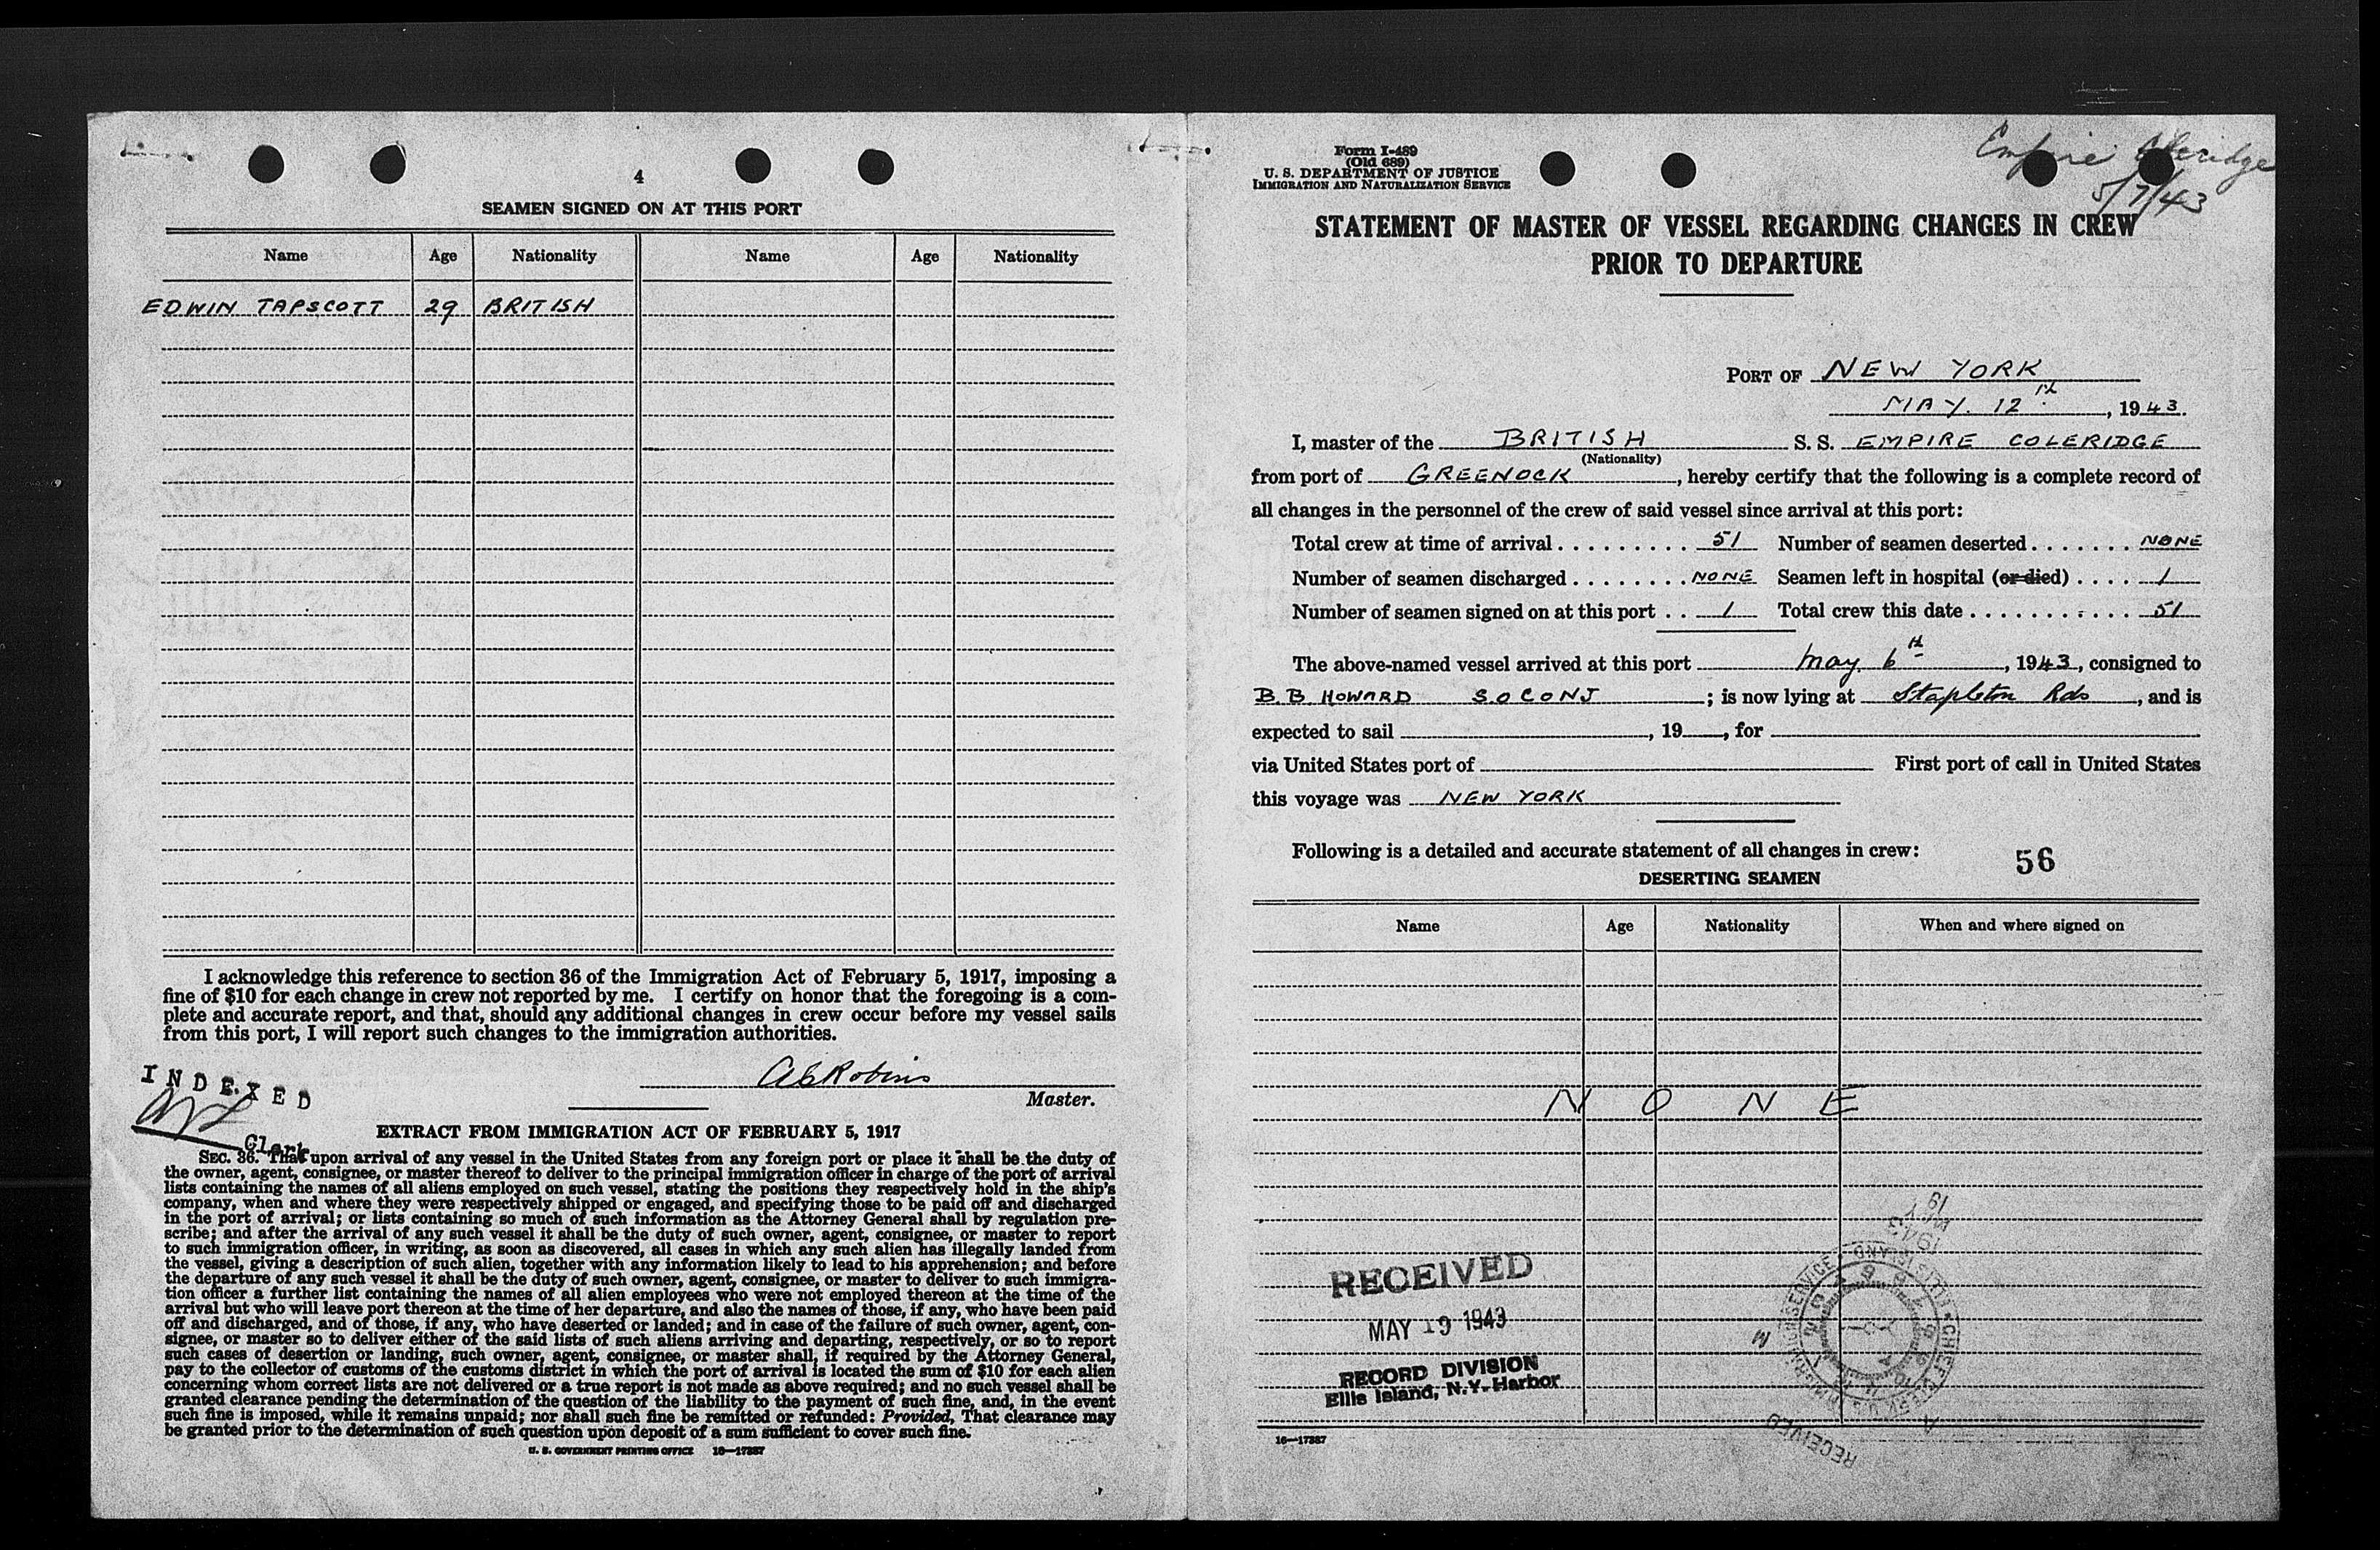 4
SEAMEN SIGNED ON AT THIS PORT
Name Age Nationality Name Age Nationality
EDWIN TAPSCOTT 29 BRITISH
I acknowledge this reference to section 36 of the Immigration Act of February 5, 1917, imposing a
fine of $10 for each change in crew not reported by me. I certify on honor that the foregoing is a com-
plete and accurate report, and that, should any additional changes in crew occur before my vessel sails
from this port, I will report such changes to the immigration authorities.
Master.
INDEXED
Clerk
EXTRACT FROM IMMIGRATION ACT OF FEBRUARY 5, 1917
SEC. 36. That upon arrival of any vessel in the United States from any foreign port or place it shall be the duty of
the owner, agent, consignee, or master thereof to deliver to the principal immigration officer in charge of the port of arrival
lists containing the names of all aliens employed on such vessel, stating the positions they respectively hold in the ship's
company, when and where they were respectively shipped or engaged, and specifying those to be paid off and discharged
in the port of arrival; or lists containing so much of such information as the Attorney General shall by regulation pre-
scribe; and after the arrival of any such vessel it shall be the duty of such owner, agent, consignee, or master to report
to such immigration officer, in writing, as soon as discovered, all cases in which any such alien has illegally landed from
the vessel, giving a description of such alien, together with any information likely to lead to his apprehension; and before
the departure of any such vessel it shall be the duty of such owner, agent, consignee, or master to deliver to such immigra-
tion officer a further list containing the names of all alien employees who were not employed thereon at the time of the
arrival but who will leave port thereon at the time of her departure, and also the names of those, if any, who have been paid
off and discharged, and of those, if any, who have deserted or landed; and in case of the failure of such owner, agent, con-
signee, or master so to deliver either of the said lists of such aliens arriving and departing, respectively, or so to report
such cases of desertion or landing, such owner, agent, consignee, or master shall, if required by the Attorney General,
pay to the collector of customs of the customs district in which the port of arrival is located the sum of $10 for each alien
concerning whom correct lists are not delivered or a true report is not made as above required; and no such vessel shall be
granted clearance pending the determination of the question of the liability to the payment of such fine, and, in the event
such fine is imposed, while it remains unpaid; nor shall such fine be remitted or refunded: Provided, That clearance may
be granted prior to the determination of such question upon deposit of a sum sufficient to cover such fine.
U. S. GOVERNMENT PRINTING OFFICE 16—17387
Form I-489
(Old 689)
U. S. DEPARTMENT OF JUSTICE
IMMIGRATION AND NATURALIZATION SERVICE
Empire Coleridge
5/7/43
STATEMENT OF MASTER OF VESSEL REGARDING CHANGES IN CREW
PRIOR TO DEPARTURE
PORT OF NEW YORK
MAY. 12th, 1943.
I, master of the BRITISH S. S. EMPIRE COLERIDGE
(Nationality)
from port of GREENOCK, hereby certify that the following is a complete record of
all changes in the personnel of the crew of said vessel since arrival at this port:
Total crew at time of arrival . . . . . . . . . . 51 Number of seamen deserted . . . . . . . NONE
Number of seamen discharged . . . . . . . . NONE Seamen left in hospital (or died) . . . . 1
Number of seamen signed on at this port . . 1 Total crew this date . . . . . . . . . . . . 51
The above-named vessel arrived at this port May. 6th, 1943, consigned to
B.B. HOWARD S.O.CONJ; is now lying at Stapleton Rds, and is
expected to sail , 19 , for
via United States port of First port of call in United States
this voyage was NEW YORK
Following is a detailed and accurate statement of all changes in crew:
56
DESERTING SEAMEN
Name Age Nationality When and where signed on
NONE
19
MAY
1943
RECEIVED
MAY 19 1943
RECORD DIVISION
Ellis Island, N.Y. Harbor
RECEIVED
16—17387